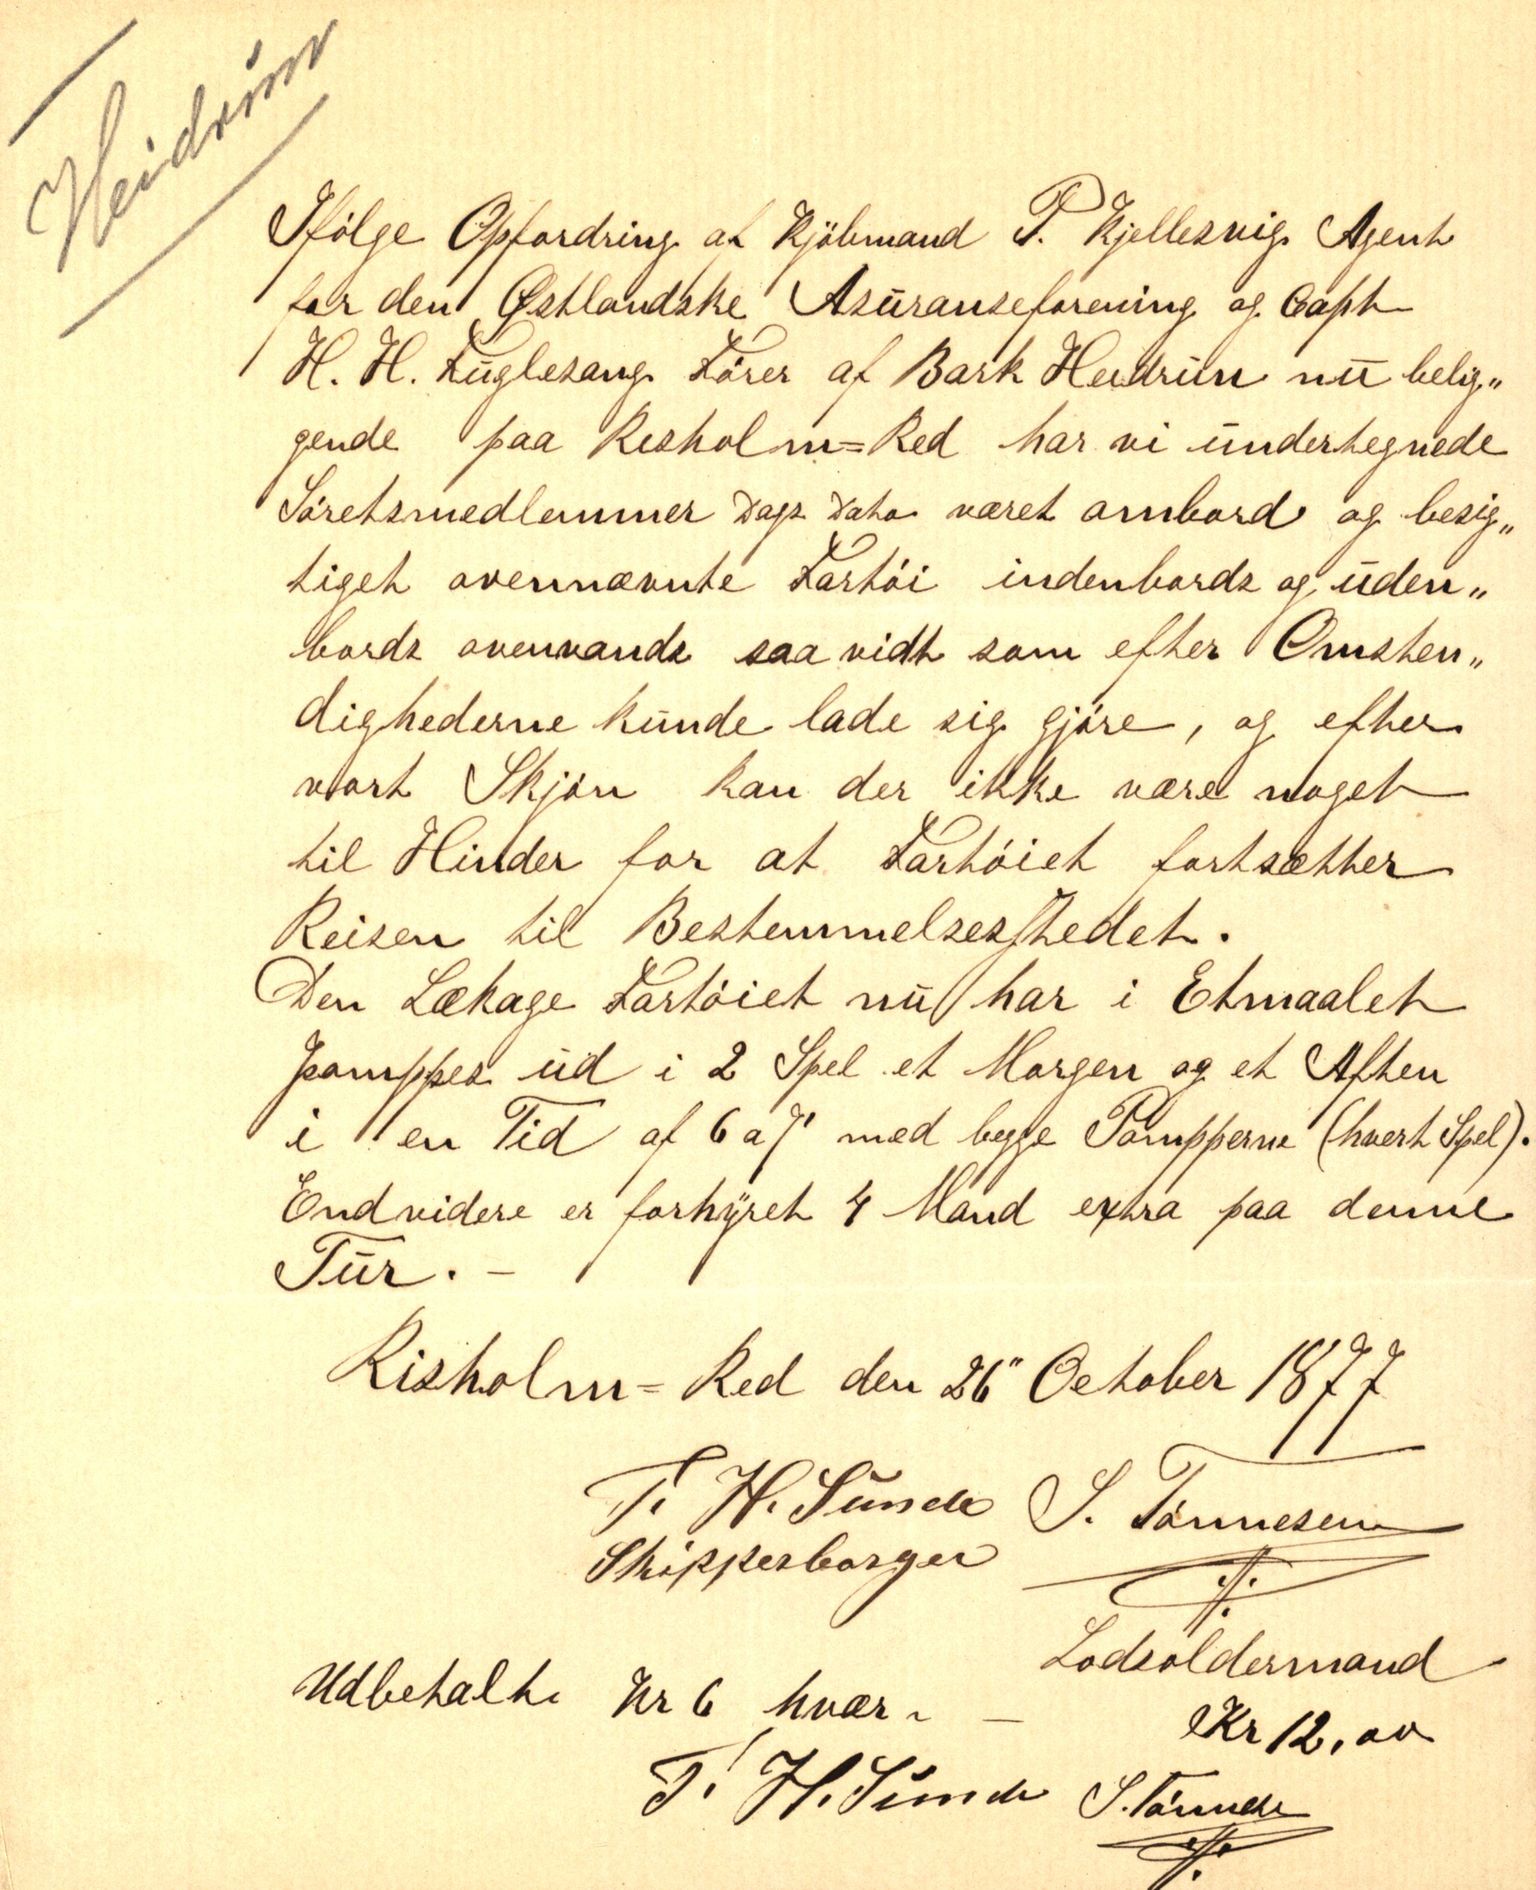 Heidrun
Ifølge Opfordring af Kjöbmand P. Kjellesvig Agent
for den Østlandske Assuranseforening og Capt
H. H. Fuglesang Förer af Bark Heidrun nu belig„
gende paa Risholm=Red har vi undertegnede
Söretsmedlemmer Dags Dato været ombord og besig„
tiget ovennævnte Fartöi indenbords og uden„
bords ovenvands saa vidt som efter Omsten„
dighederne kunde lade sig gjöre, og efter
vort Skjön kan der ikke være noget
til Hinder for at Fartöiet fortsætter
Reisen til Bestemmelsesstedet.
Den Lækage Fartöiet nu har i Etmaalet
pomppes ud i 2 Spel et Morgen og et Aften
i en Tid af 6 a 7' med begge Pompperne (hvert Spel).
Endvidere er forhyret 4 Mand extra paa denne
Tur. –
Risholm=Red den 26" October 1877
T. H. Sunde S. Tönnesen
Skipperborger
Lodsoldermand
Udbetalt Kr 6 hvær. –
Kr 12,00
T. H. Sunde S. Tönnesen